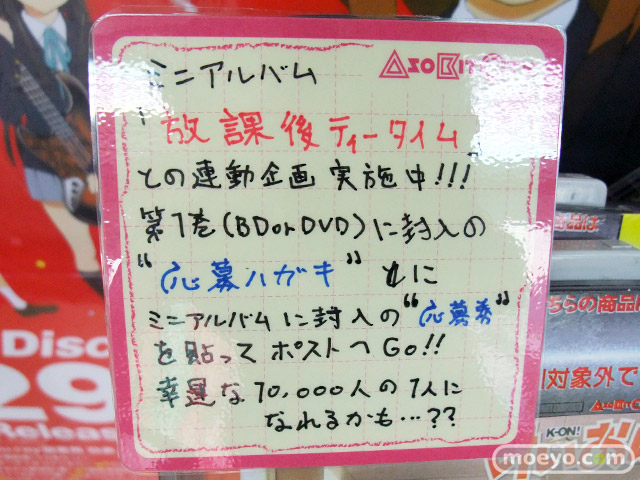 AsoBit
ミニアルバム
「放課後ティータイム」
との連動企画実施中!!!
第1巻(BDorDVD)に封入の
"応募ハガキ" に
ミニアルバムに封入の"応募券"
を貼ってポストへGo!!
幸運な10,000人の1人に
なれるかも…??
Disc
29
Release
ちらの商品
対象外で
K-ON!
moeyo.com